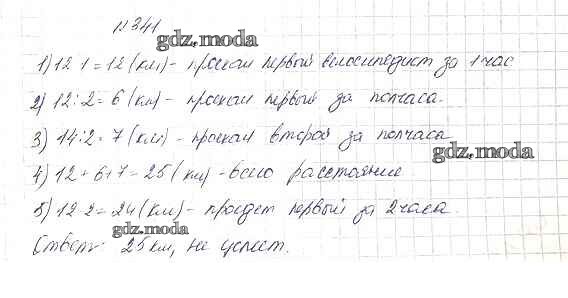 №341
gdz.moda
1) 12·1=12 (км) - проехал первый велосипедист за 1 час
2) 12:2=6 (км) - проехал первый за полчаса.
3) 14:2=7 (км) - проехал второй за полчаса
gdz.moda
4) 12+6+7=25 (км) - всего расстояние.
5) 12·2=24 (км) - проедет первый за 2 часа.
gdz.moda
Ответ: 25 км, не успеет.